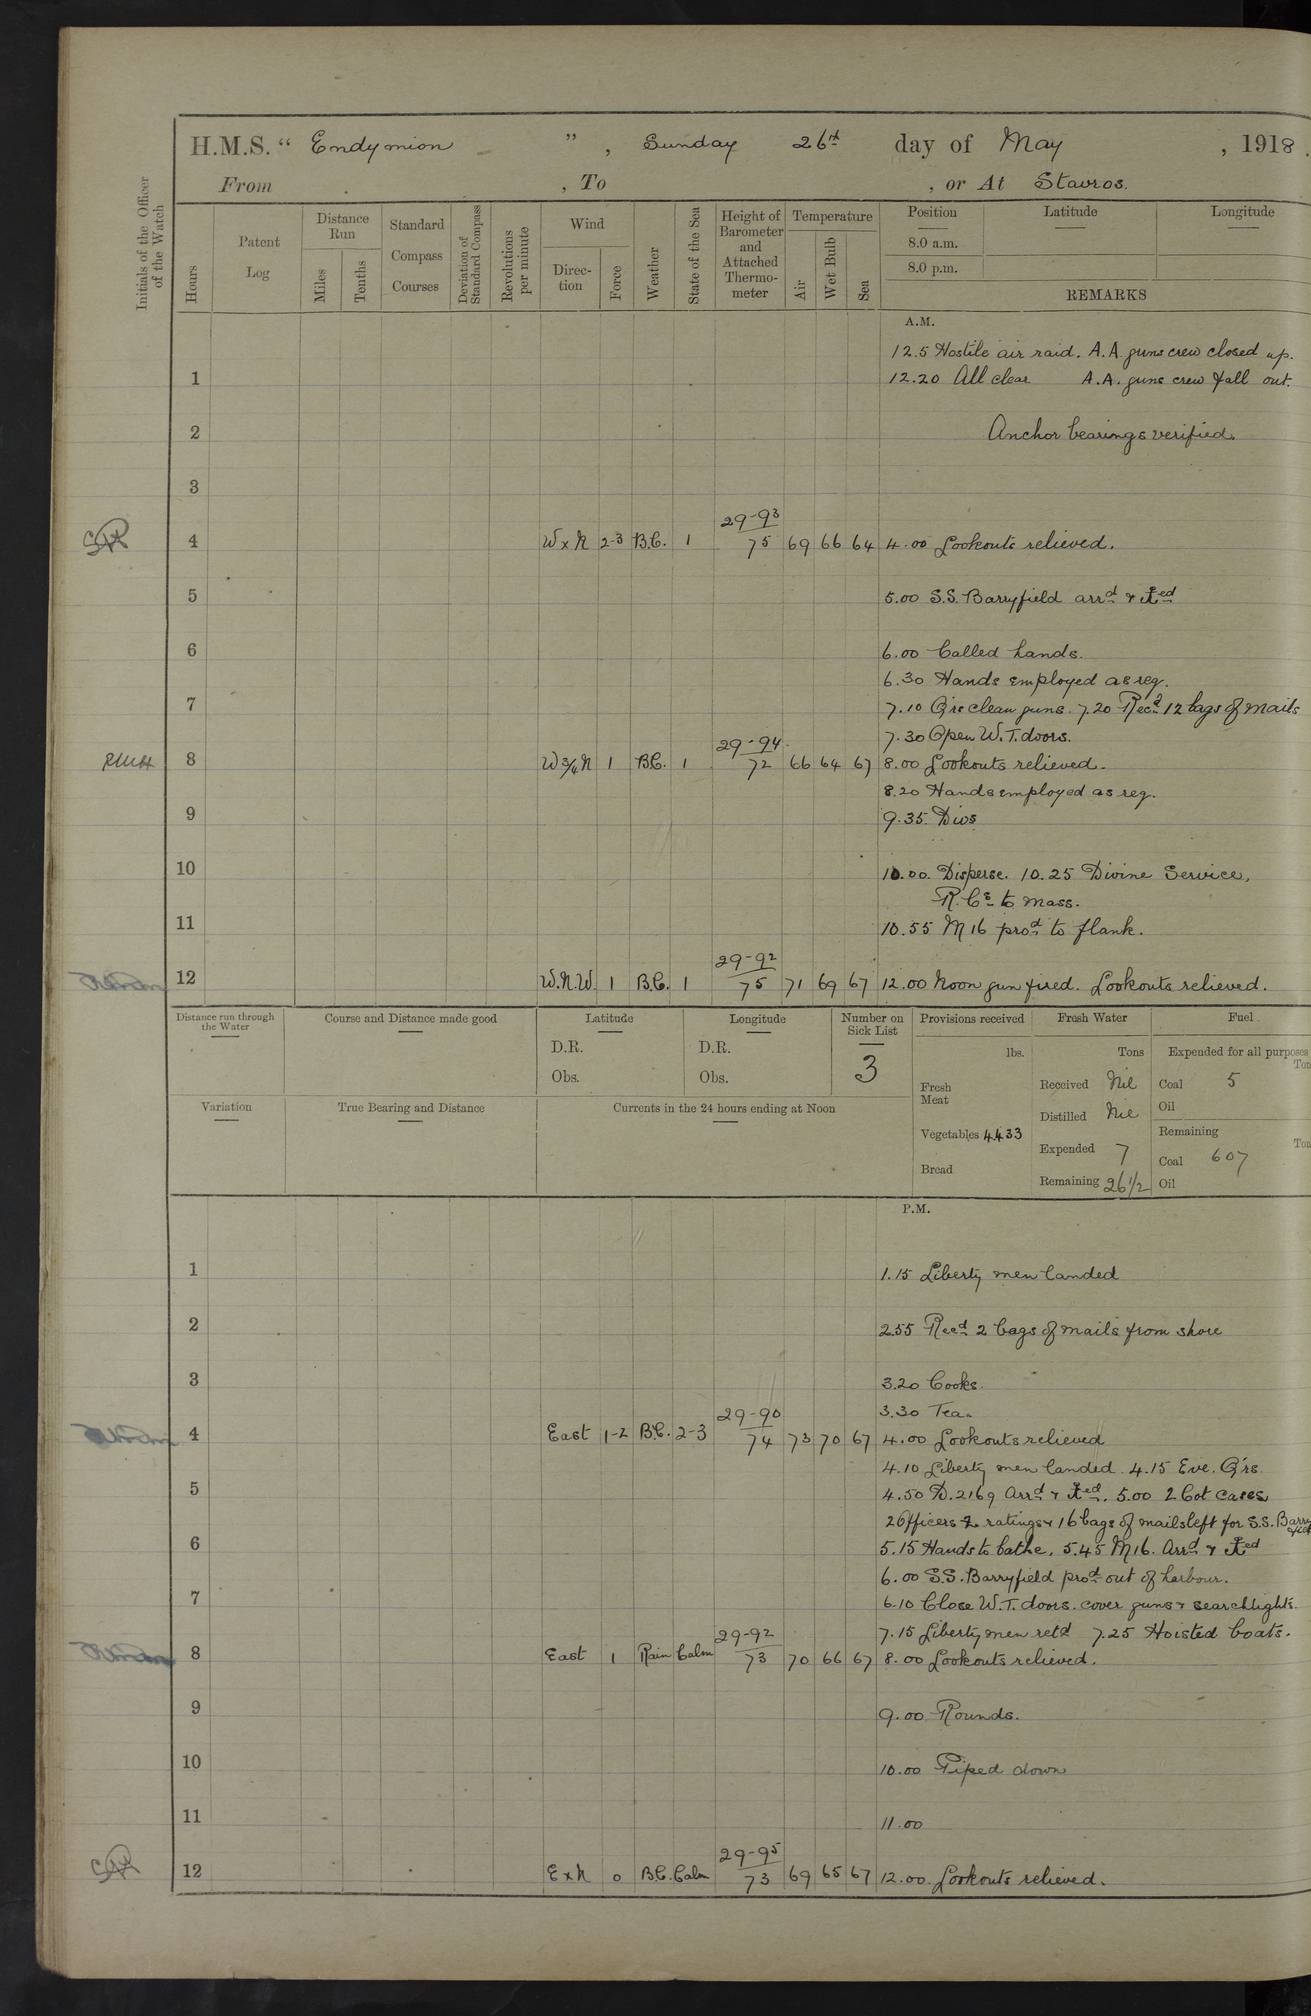 H.M.S. “ Endymion ” , Sunday 26th day of May , 1918.
From , To , or At Stavros.
Initials of the Officer of the Watch
Hours
Patent Log
Distance Run
Miles
Tenths
Standard Compass Courses
Deviation of Standard Compass
Revolutions per minute
Wind
Direc-tion
Force
Weather
State of the Sea
Height of Barometer and Attached Thermo-meter
Temperature
Air
Wet Bulb
Sea
Position
Latitude
Longitude
8.0 a.m.
8.0 p.m.
REMARKS
A.M.
12.5 Hostile air raid. A.A. guns crew closed up.
1 12.20 All clear A.A. guns crew fall out.
2 Anchor bearings verified.
3
29-93
4 W x N 2-3 B.C. 1 75 69 66 64 4.00 Lookouts relieved.
5 5.00 S.S. Barryfield arrd & ⚓ed
6 6.00 Called hands.
6.30 Hands employed as req.
7 7.10 Qrs clean guns. 7.20 Recd 12 bags of mails
7.30 Open W.T. doors.
29-94
RWH 8 W 3/4 N 1 B.C. 1 72 66 64 67 8.00 Lookouts relieved.
8.20 Hands employed as req.
9 9.35. Divs
10 10.00. Disperse. 10.25 Divine Service,
R.Cs to mass.
11 10.55 M16 prod to flank.
29-92
12 W.N.W. 1 B.C. 1 75 71 69 67 12.00 Noon gun fired. Lookouts relieved.
Distance run through the Water
Course and Distance made good
Latitude
D.R.
Obs.
Longitude
D.R.
Obs.
Number on Sick List
3
Provisions received
lbs.
Fresh Meat
Vegetables 4433
Bread
Fresh Water
Tons
Received Nil
Distilled Nil
Expended 7
Remaining 26 1/2
Fuel
Expended for all purposes
Coal 5
Oil
Remaining
Coal 607
Oil
Variation
True Bearing and Distance
Currents in the 24 hours ending at Noon
P.M.
1 1.15 Liberty men landed
2 2.55 Recd 2 bags of mails from shore
3 3.20 Cooks.
3.30 Tea.
29-90
4 East 1-2 B.C. 2-3 74 73 70 67 4.00 Lookouts relieved
4.10 Liberty men landed. 4.15 Eve. Qrs.
5 4.50 D.2169 Arrd & ⚓ed. 5.00 2 Cot cases
2 Officers 2 ratings & 16 bags of mails left for S.S. Barryfield
6 5.15 Hands to bathe, 5.45 M16. Arrd & ⚓ed
6.00 S.S. Barryfield prod out of harbour.
7 6.10 Close W.T. doors. cover guns & searchlights.
7.15 Liberty men retd 7.25 Hoisted boats.
29-92
8 East 1 Rain Calm 73 70 66 67 8.00 Lookouts relieved.
9 9.00 Rounds.
10 10.00 Piped down
11 11.00
29-95
12 E x N 0 B.C. Calm 73 69 65 67 12.00. Lookouts relieved.